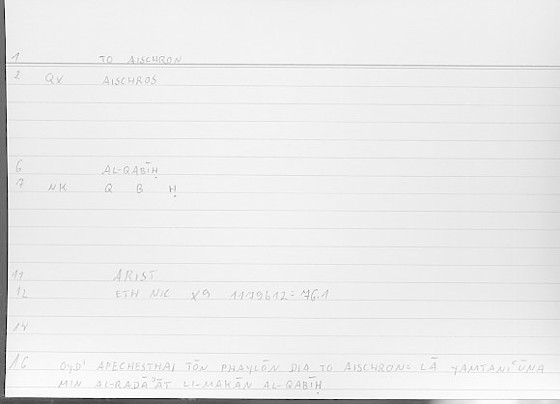 1 TO AISCHRON
2 QX AISCHROS
6 AL-QABĪḤ
7 NK Q B Ḥ
11 ARIST
12 ETH NIC X9 1179b12 = 76.1
14
16 OYD' APECHESTHAI TŌN PHAYLŌN DIA TO AISCHRON = LĀ YAMTANIʿŪNA
MIN AL-RADĀʾĀT LI-MAKĀN AL-QABĪḤ